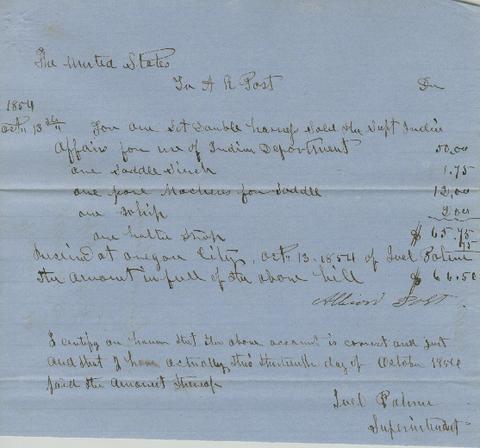 The United States
To A R Post Dr
1854
Oct. 13th For one Set Double harness Sold the Supt Indian
Affairs for use of Indian Department 50.00
one Saddle Sinch 1.75
one pare Macheers for Saddle 12.00
one whip 2.00
$ 65.75
one halter Strap 75
Received at Oregon City, Oct. 13. 1854 of Joel Palmer
the Amount in full of the above bill $ 66.50
Post
I certify on honor that the above account is correct and just
and that I have actually this thirteenth day of October 1854
paid the amount thereof
Joel Palmer
Superintendent